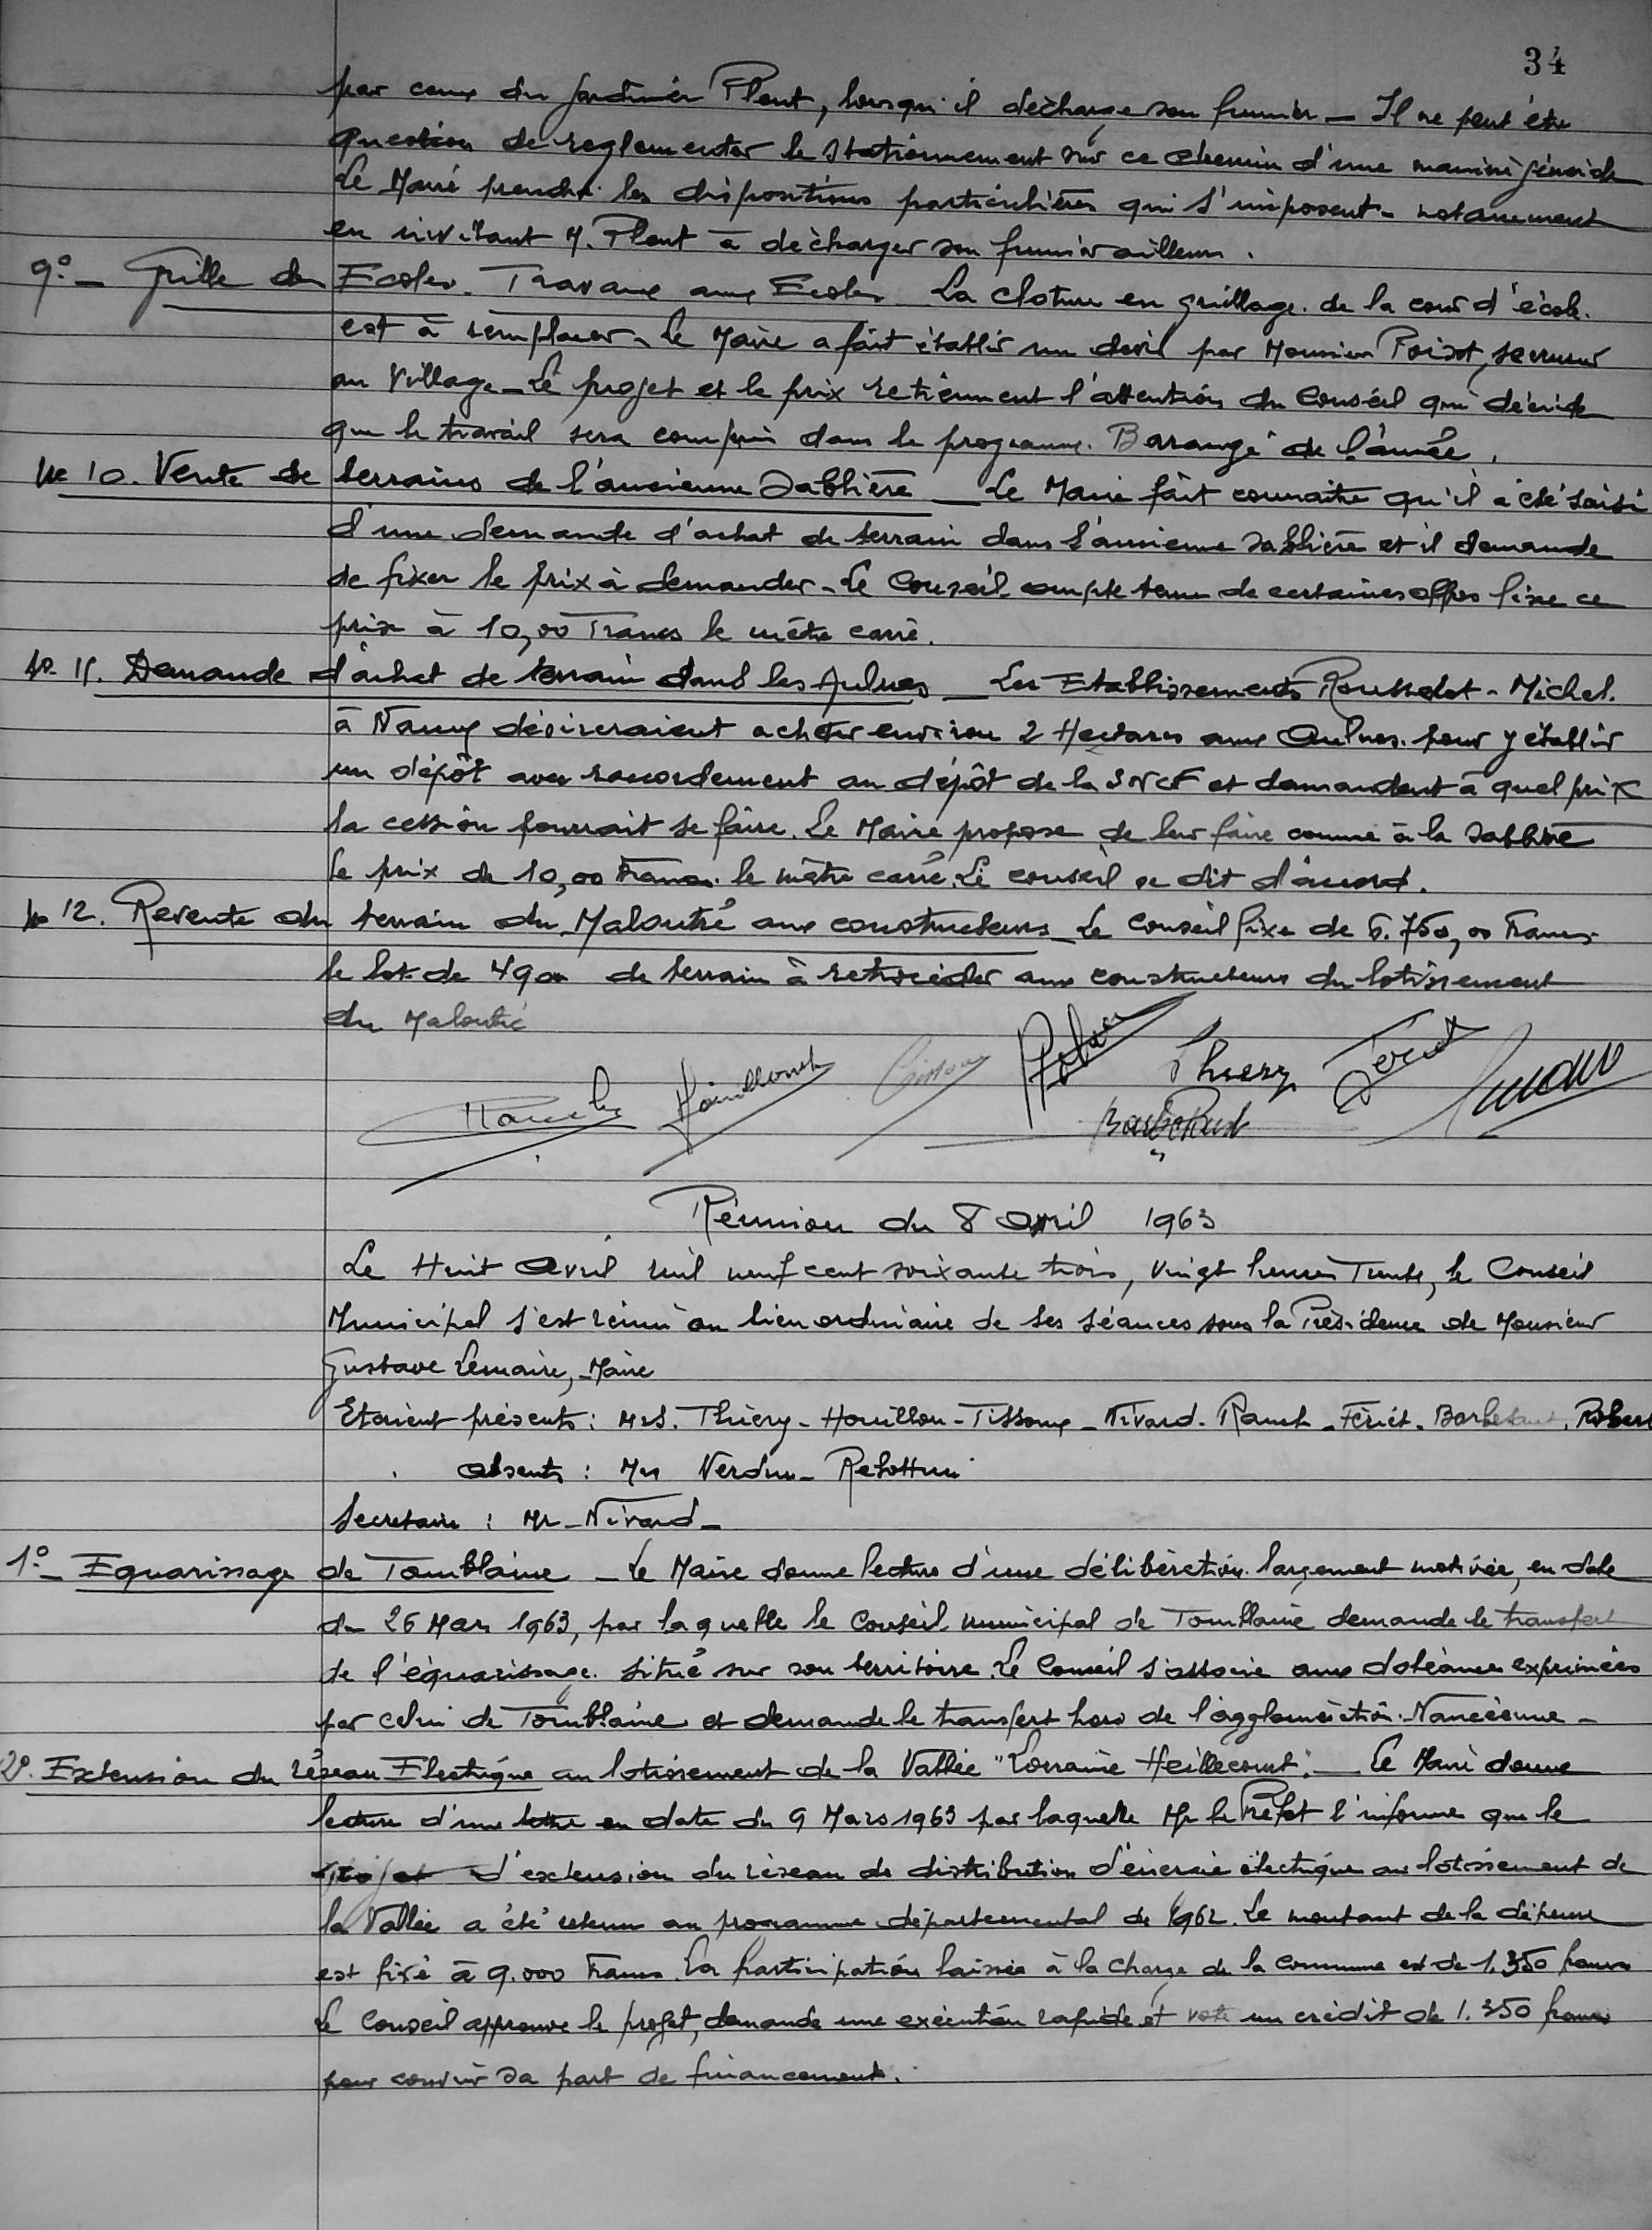 34
par ceux du jardinier Plent, lorsqu'il décharge son fumier _ Il ne peut être
question de reglementer le stationnement sur ce chemin d'une manière générale
Le Maire prendra les dispositions particulières qui s'imposent - notamment
en invitant M. Plent à décharger son fumier ailleurs.
9°_ Grille des Ecoles. Travaux aux Ecoles _ La cloture en grillage de la cour d'école
est à remplacer _ Le Maire a fait établir un devis par Monsieur Poirot, serrurier
au Village _ Le projet et le prix retiennent l'attention du Conseil qui décide
que le travail sera compris dans le programme Barrangé de l'année.
No 10. Vente de terrains de l'ancienne Sablière _ Le Maire fait connaitre qu'il a été saisi
d'une demande d'achat de terrain dans l'ancienne sablière et il demande
de fixer le prix à demander _ Le Conseil compte tenu de certaines offres fixe ce
prix à 10,00 Francs le mètre carré.
No 11. Demande d'achat de terrain dans les Aulnes _ Les Etablissements Rousselot - Michel
à Nancy désireraient acheter environ 2 Hectares aux Aulnes pour y établir
un dépôt avec raccordement au dépôt de la SNCF et demandent à quel prix
la cession pourrait se faire. Le Maire propose de leur faire comme à la Sablière
le prix de 10,00 Francs le mètre carré. Le conseil se dit d'accord.
No 12. Revente du terrain du Maloutré aux constructeurs _ Le Conseil fixe de 6.750,00 Francs
le lot de 49 de terrain à retrocéder aux constructeurs du lotissement
du Maloutré
Rauch Houillon Tissoux Robert Thiery Fériet
Barbe
Réunion du 8 Avril 1963
Le Huit Avril mil neuf cent soixante trois, vingt heures Trente, le Conseil
Municipal s'est réuni au lieu ordinaire de ses séances sous la Présidence de Monsieur
Gustave Lemaire, Maire
Etaient présents : Mrs. Thiery - Houillon - Tissoux - Nivard - Rauch - Fériet - Barbe , Robert
absents : Mrs Verdun - Rebottini
Secretaire : Mr - Nivard _
1°_ Equarissage de Tomblaine _ Le Maire donne lecture d'une délibération largement motivée, en date
du 26 Mars 1963, par laquelle le Conseil municipal de Tomblaine demande le transfert
de l'équarissage situé sur son territoire. Le Conseil s'associe aux doléances exprimées
par celui de Tomblaine et demande le transfert hors de l'agglomération Nancéienne _
2°. Extension du réseau Electrique au lotissement de la Vallée "Lorraine Heillecourt". _ Le Maire donne
lecture d'une lettre en date du 9 Mars 1963 par laquelle Mr le Préfet l'informe que le
projet d'extension du réseau de distribution d'énergie électrique au lotissement de
la Vallée a été retenu au programme départemental de 1962. Le montant de la dépense
est fixé à 9.000 Francs. La participation laissée à la charge de la commune est de 1.350 francs
Le Conseil approuve le projet, demande une exécution rapide et vote un crédit de 1.350 francs
pour couvrir sa part de financement.